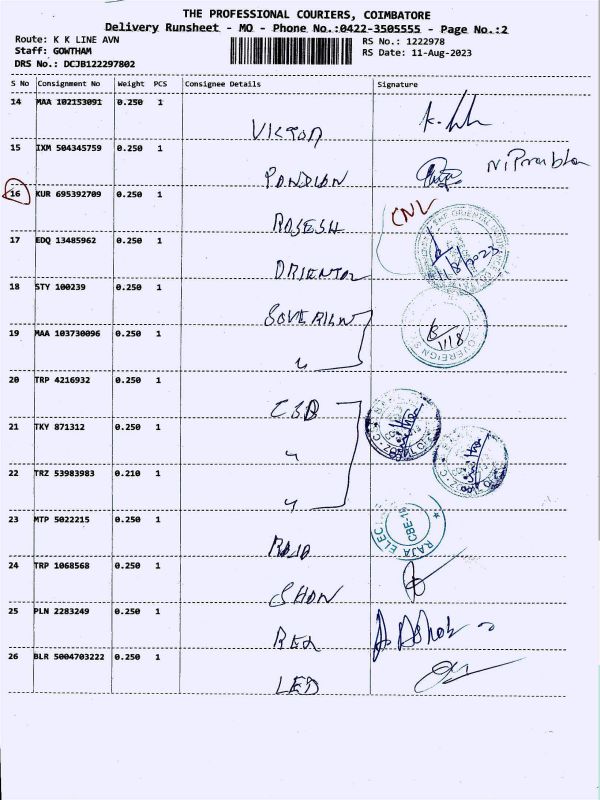 THE PROFESSIONAL COURIERS, COIMBATORE
Delivery Runsheet - MO - Phone No.:0422-3505555 - Page No.:2
Route: K K LINE AVN
RS No.: 1222978
Staff: GOWTHAM
RS Date: 11-Aug-2023
DRS No.: DCJB122297802
S No Consignment No Weight PCS Consignee Details Signature
14 MAA 102153091 0.250 1
VICTOR
15 IXM 504345759 0.250 1
PANDIAN
16 KUR 695392709 0.250 1
CNL
RAJESH
17 EDQ 13485962 0.250 1
11/8/2023
ORIENTAL
18 STY 100239 0.250 1
SOVERIGN
19 MAA 103730096 0.250 1
11/8
SOVEREIGN
20 TRP 4216932 0.250 1
CSB
21 TKY 871312 0.250 1
22 TRZ 53983983 0.210 1
23 MTP 5022215 0.250 1
RAJA ELEC
CBE-18
RAJA
24 TRP 1068568 0.250 1
SHAN
25 PLN 2283249 0.250 1
26 BLR 5004703222 0.250 1
LED